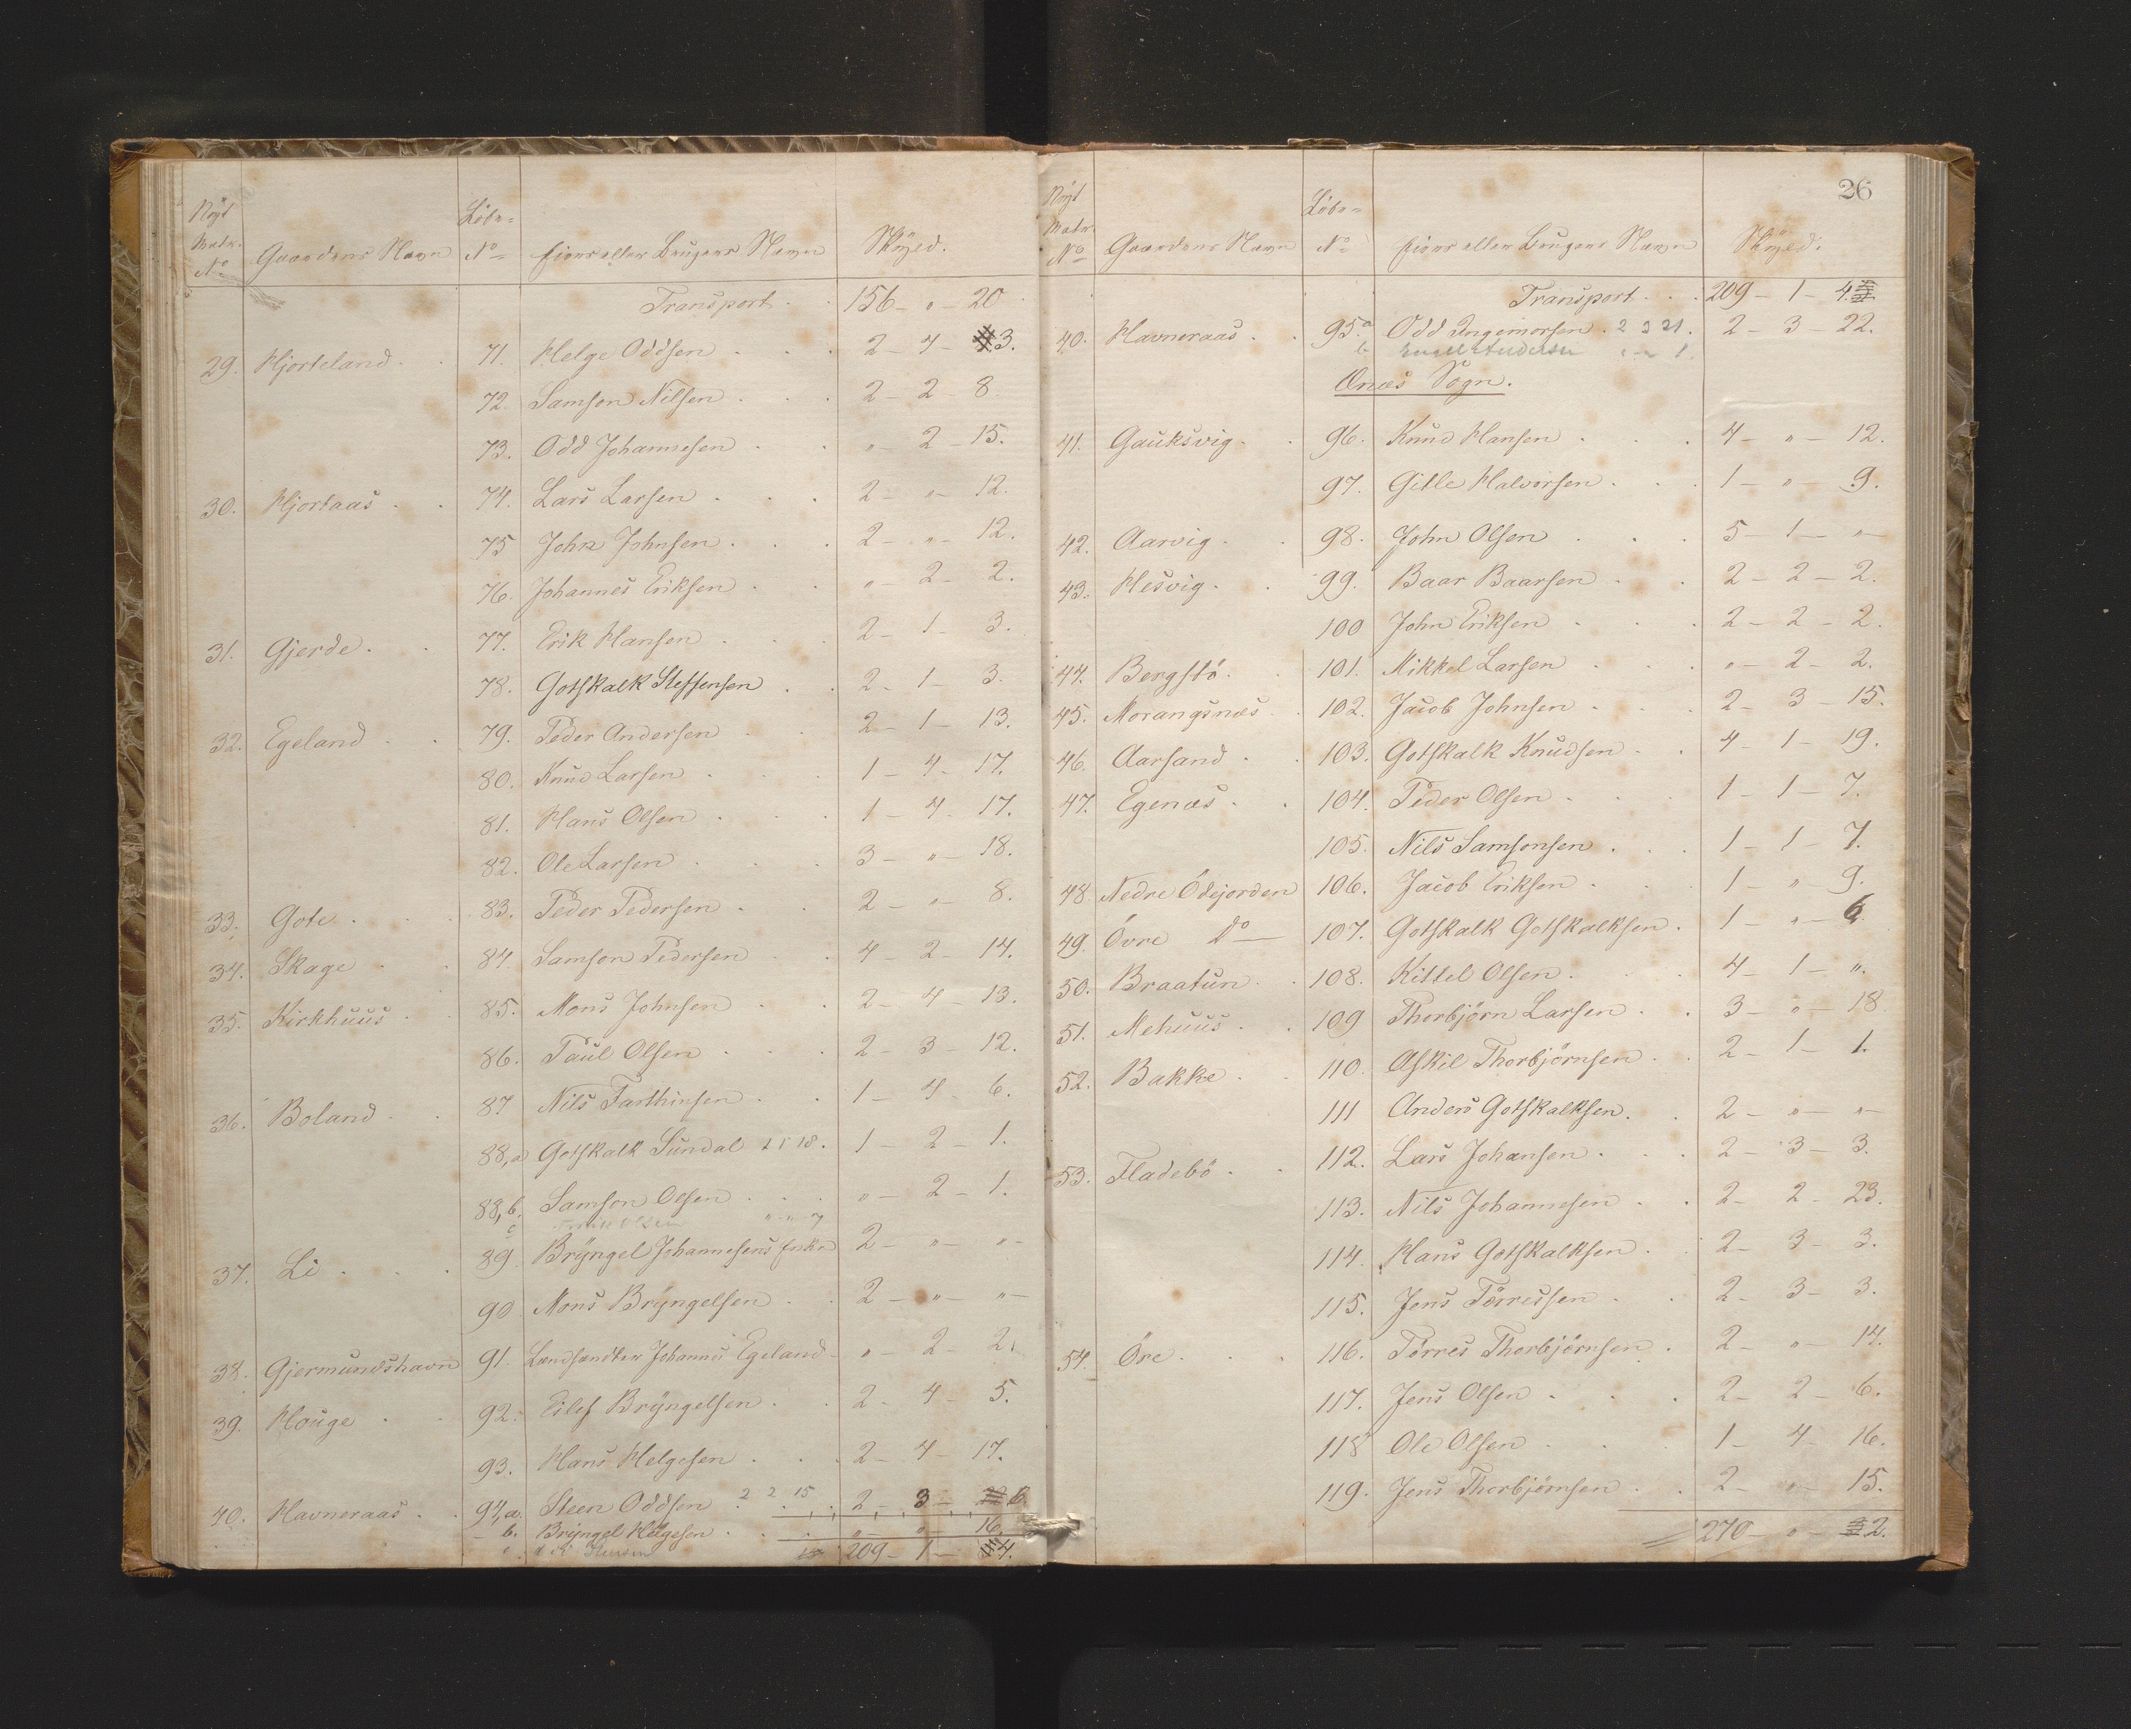 Nyt Matr. No Gaardens Navn Löbe= No Eiers eller Brugers Navn Skyld.
Transport . . 156 - " - 20
29. Hjorteland . . 71. Helge Oddsen . . . 2 - 4 - 3.
72. Samson Nilsen . . . 2 - 2 - 8
73. Odd Johannesen . . " - 2 - 15.
30. Hjortaas . . 74. Lars Larsen . . . 2 - " - 12.
75 John Johnsen . . . 2 - " - 12.
76. Johannes Eriksen . . " - 2 - 2.
31. Gjerde . . 77. Erik Hansen . . . 2 - 1 - 3.
78. Gotskalk Steffensen . . 2 - 1 - 3.
32. Egeland . . 79. Peder Andersen . . 2 - 1 - 13.
80. Knud Larsen . . . 1 - 4 - 17.
81. Hans Olsen . . . 1 - 4 - 17.
82. Ole Larsen . . . 3 - " - 18.
33. Gote . . . 83. Peder Pedersen . . 2 - " - 8.
34. Skage . . 84. Samson Pedersen . . 4 - 2 - 14.
35. Kirkhuus . . 85. Mons Johnsen . . 2 - 4 - 13.
86. Paul Olsen . . . 2 - 3 - 12.
36. Boland . . 87 Nils Farthinsen . . 1 - 4 - 6.
88,a Gotskalk Sundal 1 1 18 . 1 - 2 - 1.
88,b. Samson Olsen . . . " - 2 - 1.
c Olsen " - " 7
37. Li . . . 89. Bryngel Johannesens Enke 2 - " - "
90 Mons Bryngelsen . . 2 - " - "
38. Gjermundshavn 91. Landhandler Johannes Egeland - " - 2 - 2.
39. Houge . . 92. Eilef Bryngelsen . . 2 - 4 - 5.
93. Hans Helgesen . . . 2 - 4 - 17.
40. Havneraas . . 94,a. Steen Oddsen . 2 2 15 2 - 3 - 6
- b. Bryngel Hougesen . . . " - " - 16.
209 - 1 - 4.
26
Nyt Matr No Gaardens Navn Löbe= No Eiers eller Brugers Navn Skyld.
Transport . . . 209 - 1 - 4
40. Havneraas . . 95.a Odd Ingemorsen . 2 3 21 . 2 - 3 - 22.
b Andersen " - " 1
Ænæs Sogn.
41. Gauksvig . . 96. Knud Hansen . . . 4 - " - 12.
97. Gitle Halvorsen . . . 1 - " - 9.
42. Aarvig . . 98. John Olsen . . . 5 - 1 - "
43. Hesvig . . 99. Baar Baarsen . . 2 - 2 - 2.
100 John Eriksen . . . 2 - 2 - 2.
44. Bergstö . . 101. Mikkel Larsen . . . " - 2 - 2.
45. Morangsnæs . . 102. Jacob Johnsen . . . 2 - 3 - 15.
46. Aarsand . . 103. Gotskalk Knudsen . . 4 - 1 - 19.
47. Egenæs . . 104. Peder Olsen . . . 1 - 1 - 7.
105. Nils Samsonsen . . . 1 - 1 - 7.
48. Nedre Ödejorden 106. Jacob Eriksen . . . 1 - " - 9.
49. Övre Do 107. Gotskalk Gotskalksen . 1 - " - 6.
50. Braatun . . 108. Kittel Olsen . . . 4 - 1 - ".
51. Mehuus . . 109 Thorbjörn Larsen . . 3 - " - 18
52. Bakke . . 110. Askil Thorbjörnsen . . 2 - 1 - 1.
111 Anders Gotskalksen . . 2 - " - "
53. Fladebö . . 112. Lars Johansen . . . 2 - 3 - 3.
113. Nils Johannesen . . 2 - 2 - 23.
114. Hans Gotskalksen . . 2 - 3 - 3.
115. Jens Törressen . . 2 - 3 - 3.
54. Öre . . . 116. Törres Thorbjörnsen . 2 - " - 14.
117. Jens Olsen . . . 2 - 2 - 6.
118 Ole Olsen . . . 1 - 4 - 16.
119. Jens Thorbjörnsen . . 2 - " - 15.
270 - " - 2.